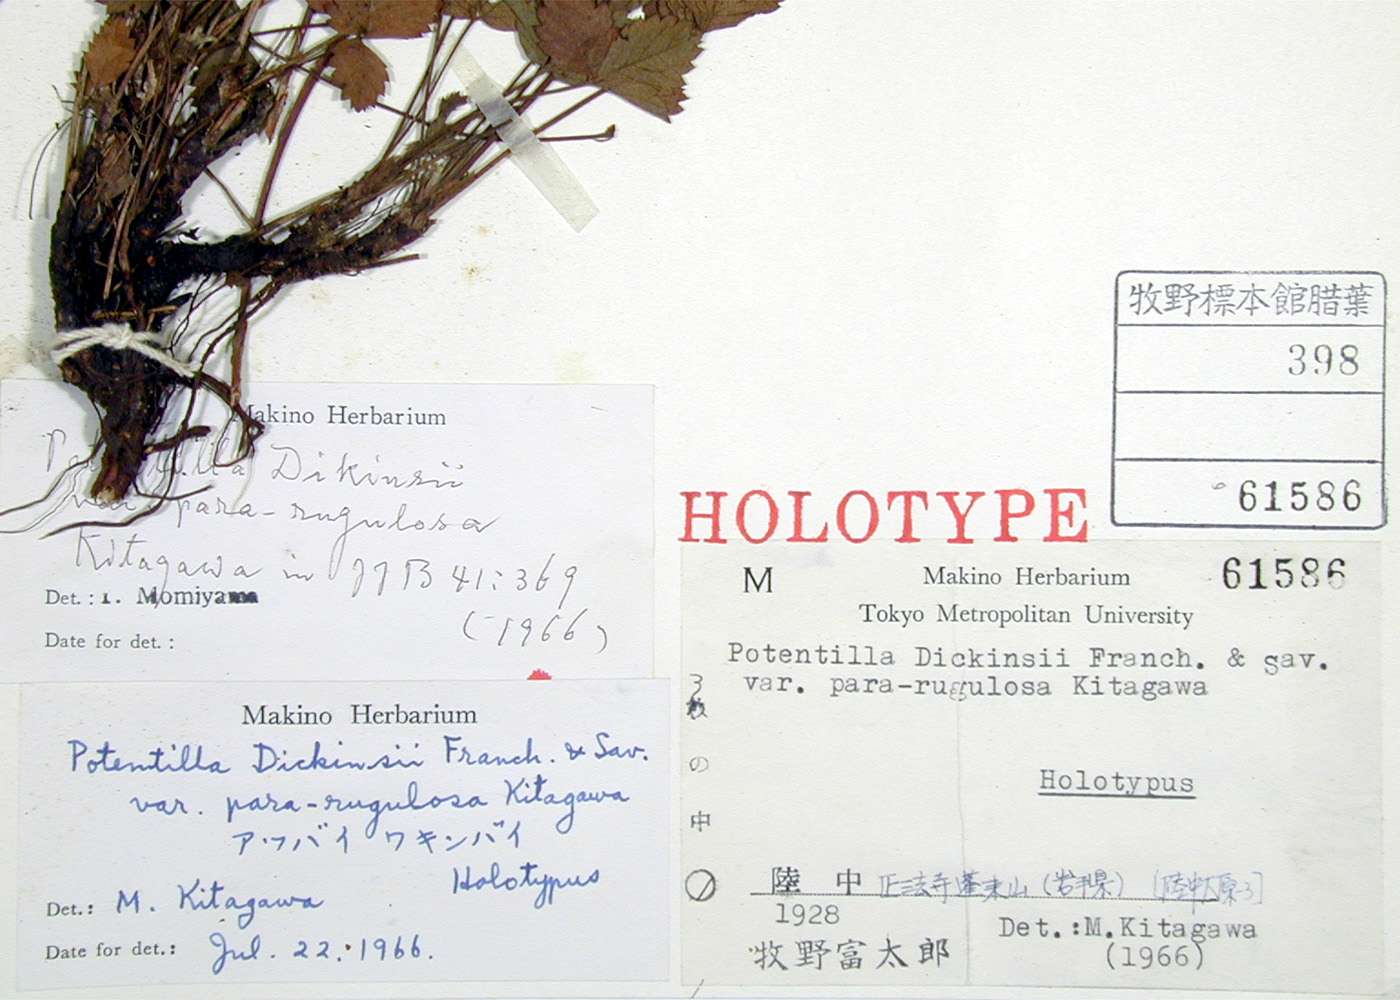 牧野標本館腊葉
398
61586
Makino Herbarium
Potentilla Dikinsii
var. para-rugulosa
Kitagawa in JJB 41:369
(1966)
Det.: I. Momiyama
Date for det.:
HOLOTYPE
M Makino Herbarium 61586
Tokyo Metropolitan University
Potentilla Dickinsii Franch. & Sav.
var. para-rugulosa Kitagawa
Holotypus
3枚の中
陸中 正法寺蓬来山（岩手県）
1928
牧野富太郎
Det.:M.Kitagawa
(1966)
Makino Herbarium
Potentilla Dickinsii Franch. & Sav.
var. para-rugulosa Kitagawa
アツバイワキンバイ
Holotypus
Det.: M. Kitagawa
Date for det.: Jul. 22. 1966.